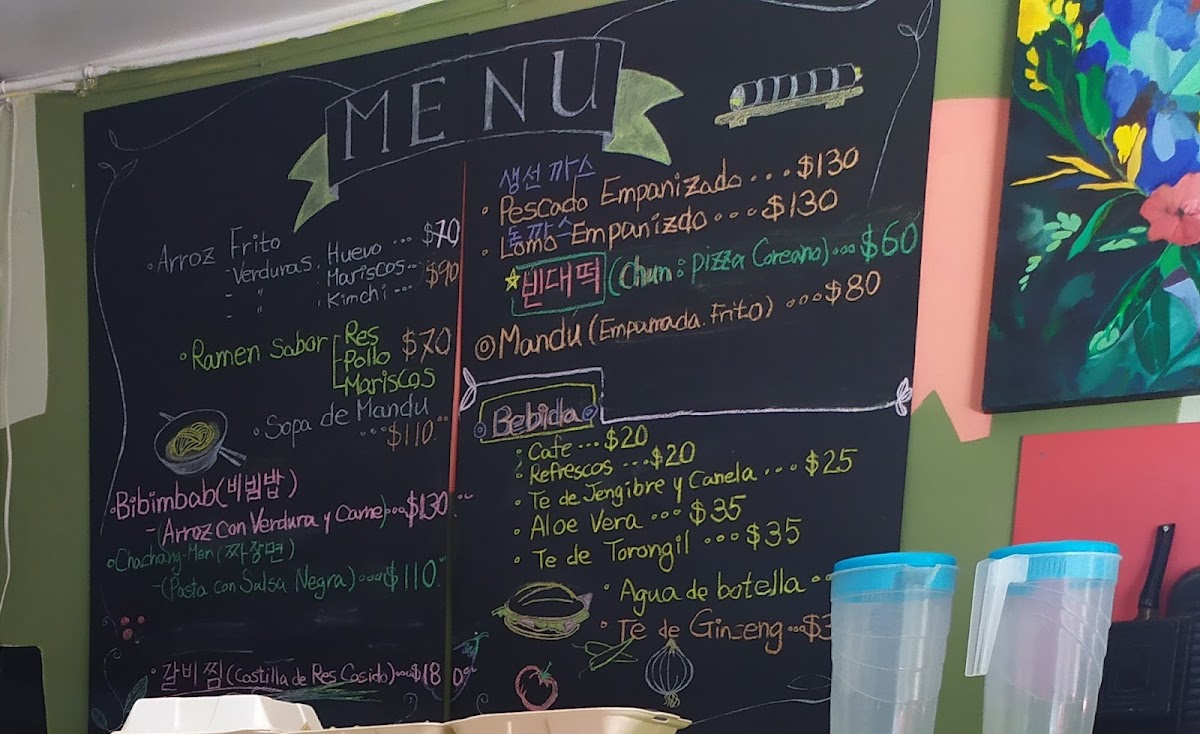 MENU
Arroz Frito
-Verduras. Huevo ... $70
- " . Mariscos.. $90
- " . Kimchi ...
Ramen Sabor Res $70
Pollo
Mariscos
Sopa de Mandu
... $110.
Bibimbab(비빔밥)
-(Arroz con Verdura y Carne)...$130
Chachang-Men (짜장면)
-(Pasta con Salsa Negra)...$110.
갈비찜(Costilla de Res Cosido)...$180
생선까스
Pescado Empanizado ... $130
돈까스
Lomo Empanizdo ... $130
빈대떡 (Chun: pizza Coreana)...$60
Mandú (Empanada. Frito) ...$80
Bebida
Cafe ... $20
Refrescos ... $20
Te de Jengibre y Canela ... $25
Aloe Vera ... $35
Te de Torongil ... $35
Agua de botella ..
Te de Ginseng...$3